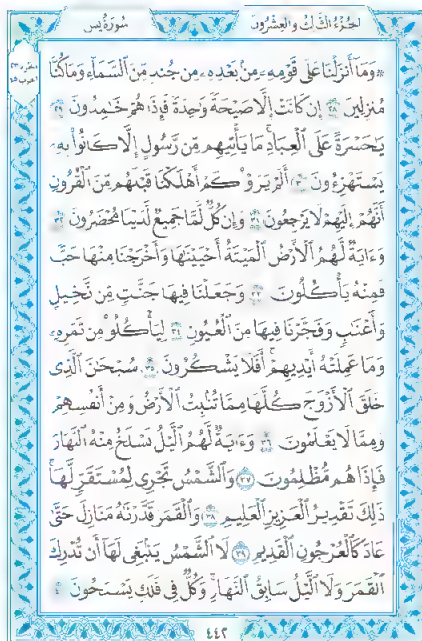 الجزء الثالث والعشرون
سورة يس
۞ وَمَا أَنزَلْنَا عَلَىٰ قَوْمِهِۦ مِنۢ بَعْدِهِۦ مِن جُندٍ مِّنَ ٱلسَّمَآءِ وَمَا كُنَّا
مُنزِلِينَ ٢٨ إِن كَانَتْ إِلَّا صَيْحَةً وَٰحِدَةً فَإِذَا هُمْ خَٰمِدُونَ ٢٩
يَٰحَسْرَةً عَلَى ٱلْعِبَادِ مَا يَأْتِيهِم مِّن رَّسُولٍ إِلَّا كَانُوا۟ بِهِۦ
يَسْتَهْزِءُونَ ٣٠ أَلَمْ يَرَوْا۟ كَمْ أَهْلَكْنَا قَبْلَهُم مِّنَ ٱلْقُرُونِ
أَنَّهُمْ إِلَيْهِمْ لَا يَرْجِعُونَ ٣١ وَإِن كُلٌّ لَّمَّا جَمِيعٌ لَّدَيْنَا مُحْضَرُونَ ٣٢
وَءَايَةٌ لَّهُمُ ٱلْأَرْضُ ٱلْمَيْتَةُ أَحْيَيْنَٰهَا وَأَخْرَجْنَا مِنْهَا حَبًّا
فَمِنْهُ يَأْكُلُونَ ٣٣ وَجَعَلْنَا فِيهَا جَنَّٰتٍ مِّن نَّخِيلٍ
وَأَعْنَٰبٍ وَفَجَّرْنَا فِيهَا مِنَ ٱلْعُيُونِ ٣٤ لِيَأْكُلُوا۟ مِن ثَمَرِهِۦ
وَمَا عَمِلَتْهُ أَيْدِيهِمْ أَفَلَا يَشْكُرُونَ ٣٥ سُبْحَٰنَ ٱلَّذِى
خَلَقَ ٱلْأَزْوَٰجَ كُلَّهَا مِمَّا تُنۢبِتُ ٱلْأَرْضُ وَمِنْ أَنفُسِهِمْ
وَمِمَّا لَا يَعْلَمُونَ ٣٦ وَءَايَةٌ لَّهُمُ ٱلَّيْلُ نَسْلَخُ مِنْهُ ٱلنَّهَارَ
فَإِذَا هُم مُّظْلِمُونَ ٣٧ وَٱلشَّمْسُ تَجْرِى لِمُسْتَقَرٍّ لَّهَا
ذَٰلِكَ تَقْدِيرُ ٱلْعَزِيزِ ٱلْعَلِيمِ ٣٨ وَٱلْقَمَرَ قَدَّرْنَٰهُ مَنَازِلَ حَتَّىٰ
عَادَ كَٱلْعُرْجُونِ ٱلْقَدِيمِ ٣٩ لَا ٱلشَّمْسُ يَنۢبَغِى لَهَآ أَن تُدْرِكَ
ٱلْقَمَرَ وَلَا ٱلَّيْلُ سَابِقُ ٱلنَّهَارِ وَكُلٌّ فِى فَلَكٍ يَسْبَحُونَ ٤٠
٤٤٢